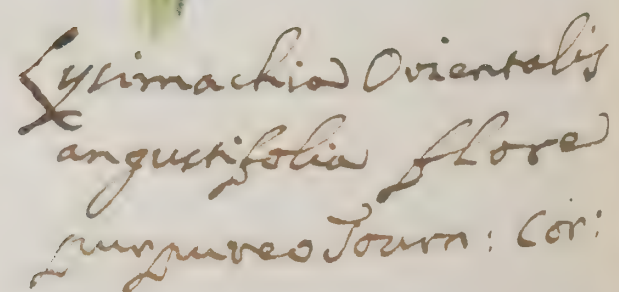 Lysimachia Orientalis
angustifolia flore
purpureo Tourn: Cor: